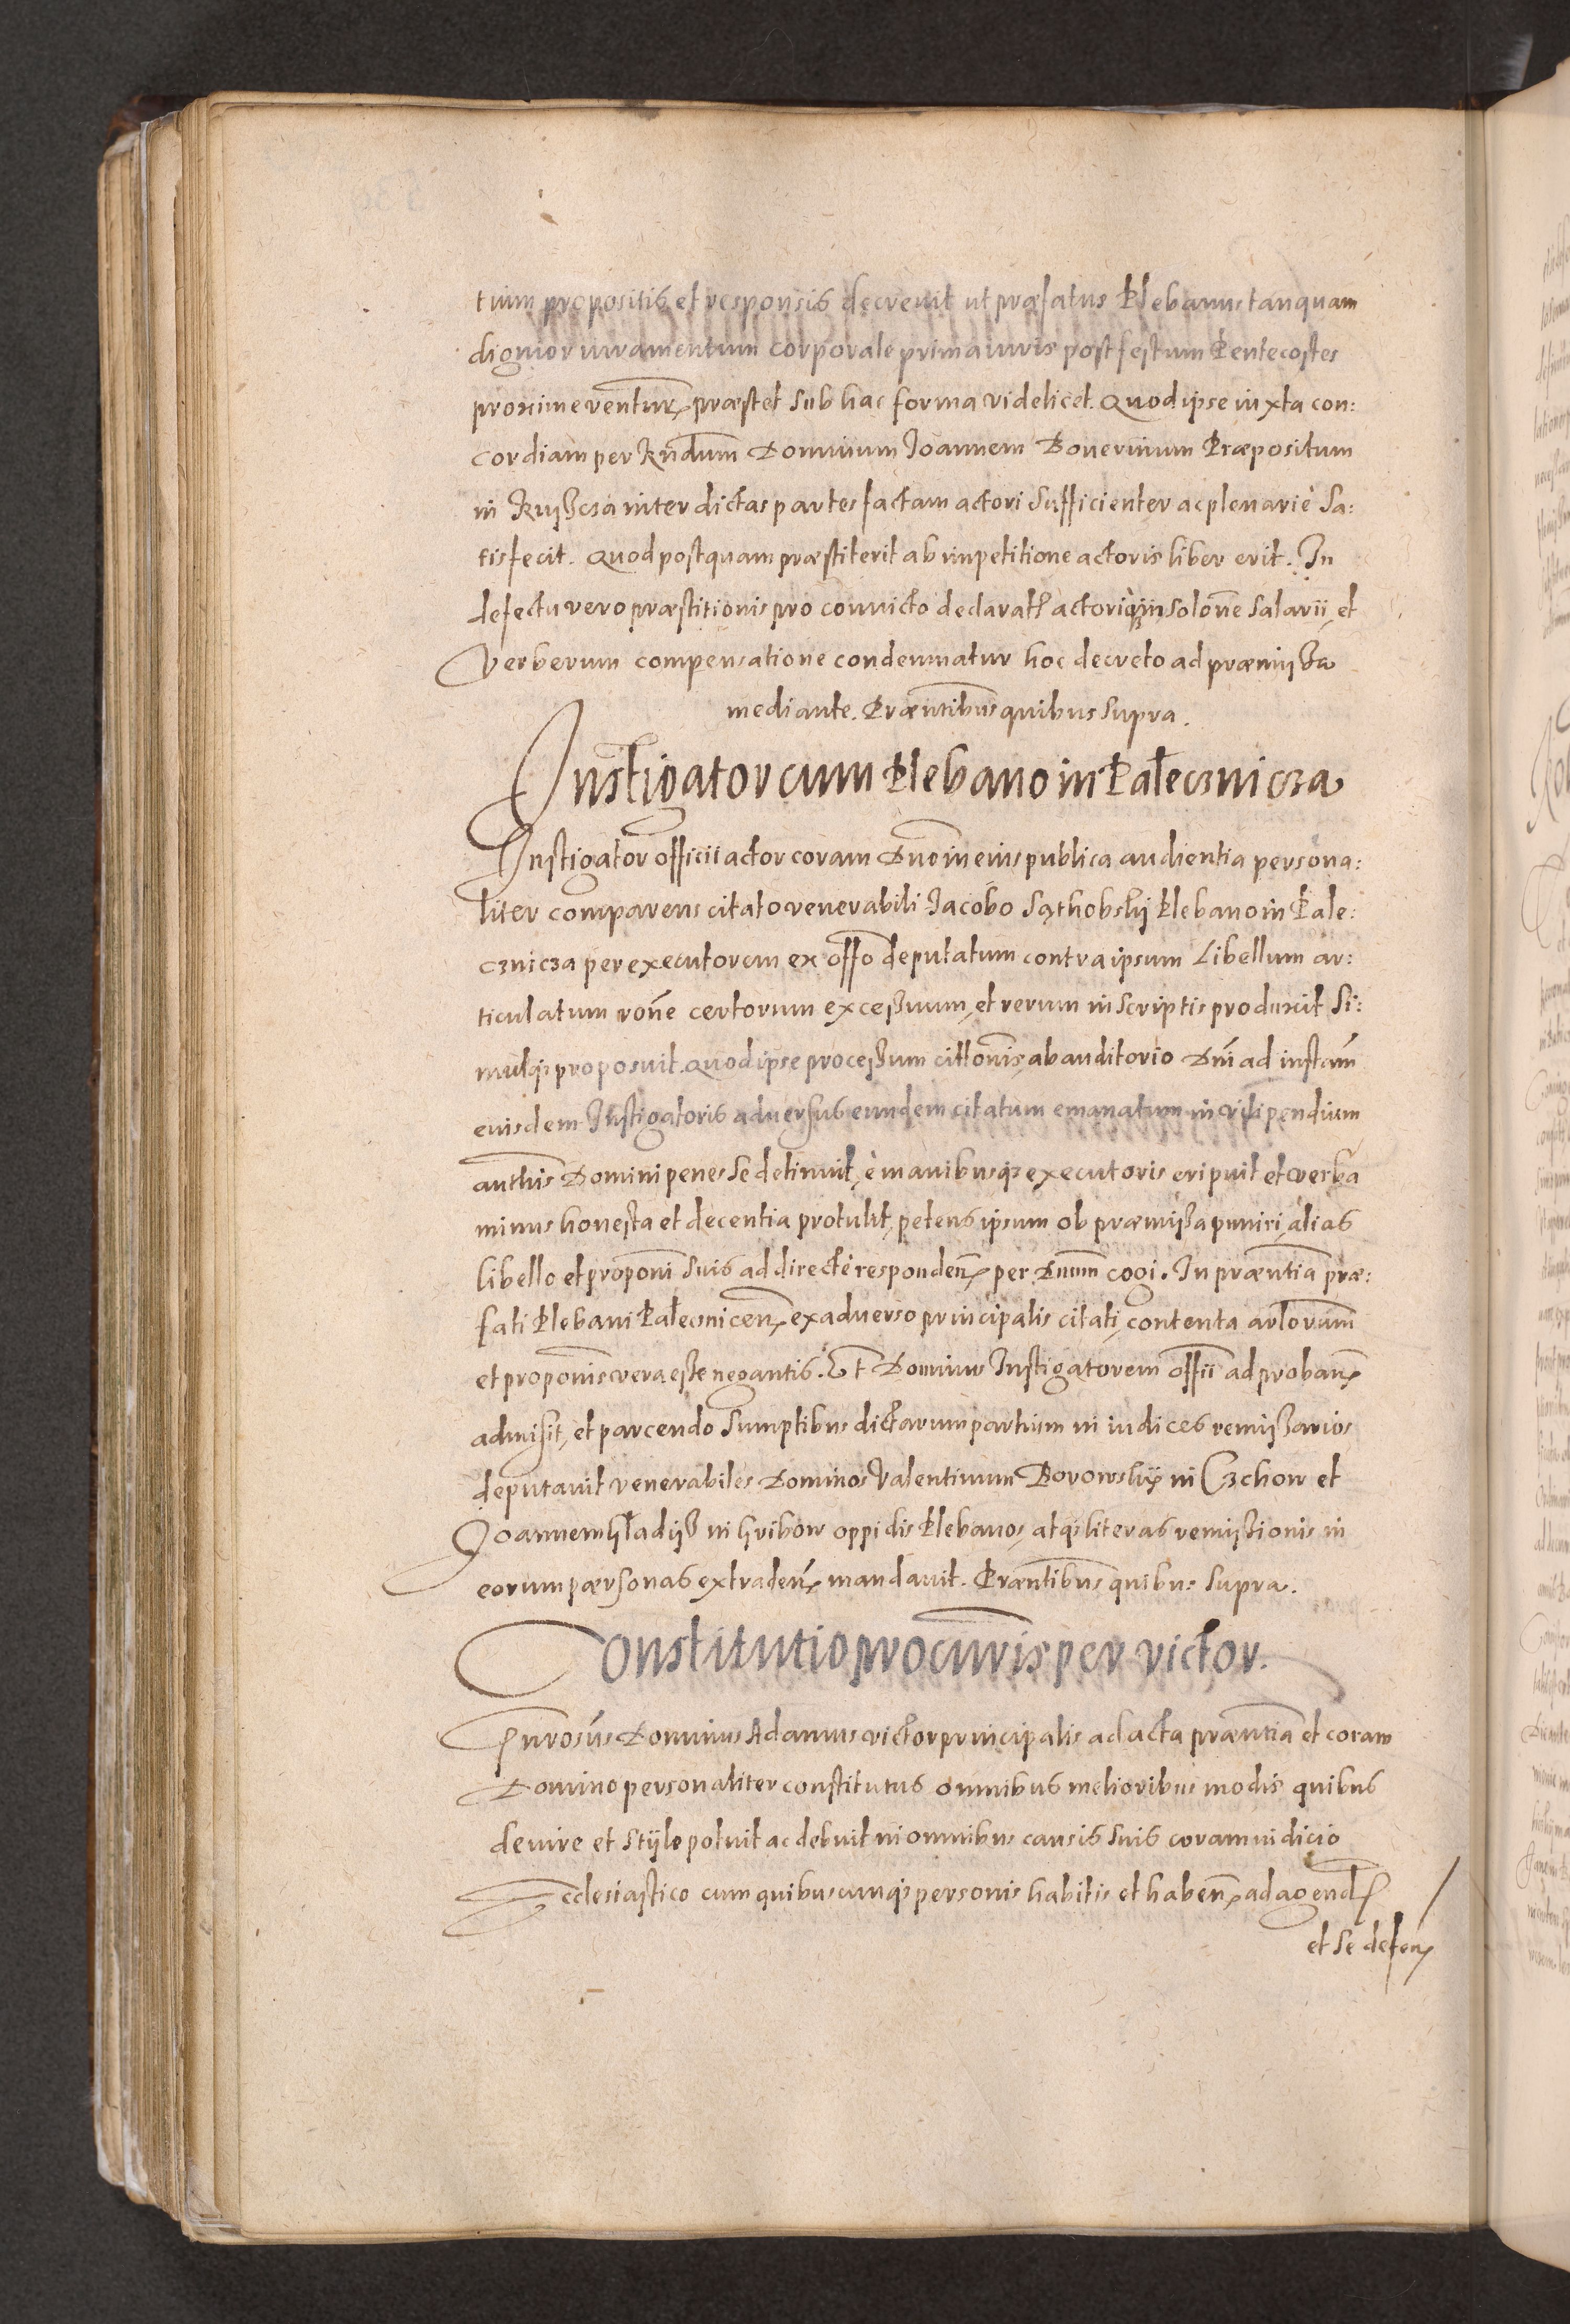 tium propositis et responsis decrevit ut præfatus Plebanus tanquam
dignior iuramentum corporale prima iuris post festum Pentecostes
proxime ventur præstet sub hac forma videlicet. Quod ipse iuxta con:
cordiam per Rñdum Dominum Joannem Bovernium Præpositum
in Kxyßcza inter dictas partes factam actori sufficienter ac plenariè sa:
tisfecit. Quod postquam præstiterit ab inpetitione actoris liber erit. In
defectu vero præstitionis pro convicto declarat actoriq in solone salarii, et
verberum compensatione condemnatur hoc decreto ad præmißa
mediante. Præntibus quibus supra.
Instigator cum Plebano in Palecznicza
Instigator officii actor coram Dno in eius publica audientia persona:
liter comparens citato venerabili Jacobo Sąthobskij Plebano in Pale:
cznicza per executorem ex offo deputatum contra ipsum Libellum ar:
ticulatum rone certorum exceßuum, et rerum in scriptis produxit Si:
mulq proposuit. Quod ipse proceßum cittonis ab auditorio Dni ad instam
eiusdem Instigatoris adversus eundem citatum emanatum in vilipendium
authis Domini penes se detinuit, è manibusq executoris eripuit et verba
minus honesta et decentia protulit, petens ipsum ob præmißa puniri, alias
libello et proponi suis ad directè responden per Dnum cogi. In præntia præ:
fati Plebani Palecznicen ex adverso principalis citati, contenta arlorum
et proponis vera esse negantis. Et Dominus Instigatorem offii ad proban
admisit, et parcendo sumptibus dictarum partium in iudices remißarios
deputavit venerabiles Dominos Valentinum Borowskij in Czchow et
Joannem Gładijß in Gribow oppidis Plebanos, atq literas remißionis in
eorum pærsonas extraden mandavit. Præntibus quibus supra.
Constitutio procuris per victor.
Gnrosus Dominus Adamus victor principalis ad acta præntia et coram
Domino personaliter constitutus omnibus melioribus modis quibus
de iure et stijlo potuit ac debuit in omnibus causis suis coram iudicio
Ecclesiastico cum quibuscunq personis habitis et haben ad agend
et se defen